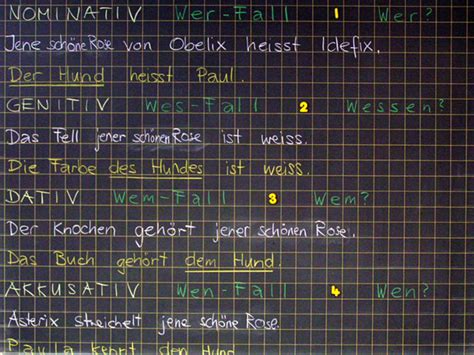 NOMINATIV Wer-Fall 1 Wer?
Jene schöne Rose von Obelix heisst Idefix.
Der Hund heisst Paul.
GENITIV Wes-Fall 2 Wessen?
Das Fell jener schönen Rose ist weiss.
Die Farbe des Hundes ist weiss.
DATIV Wem-Fall 3 Wem?
Der Knochen gehört jener schönen Rose.
Das Buch gehört dem Hund.
AKKUSATIV Wen-Fall 4 Wen?
Asterix streichelt jene schöne Rose.
Paula kennt den Hund